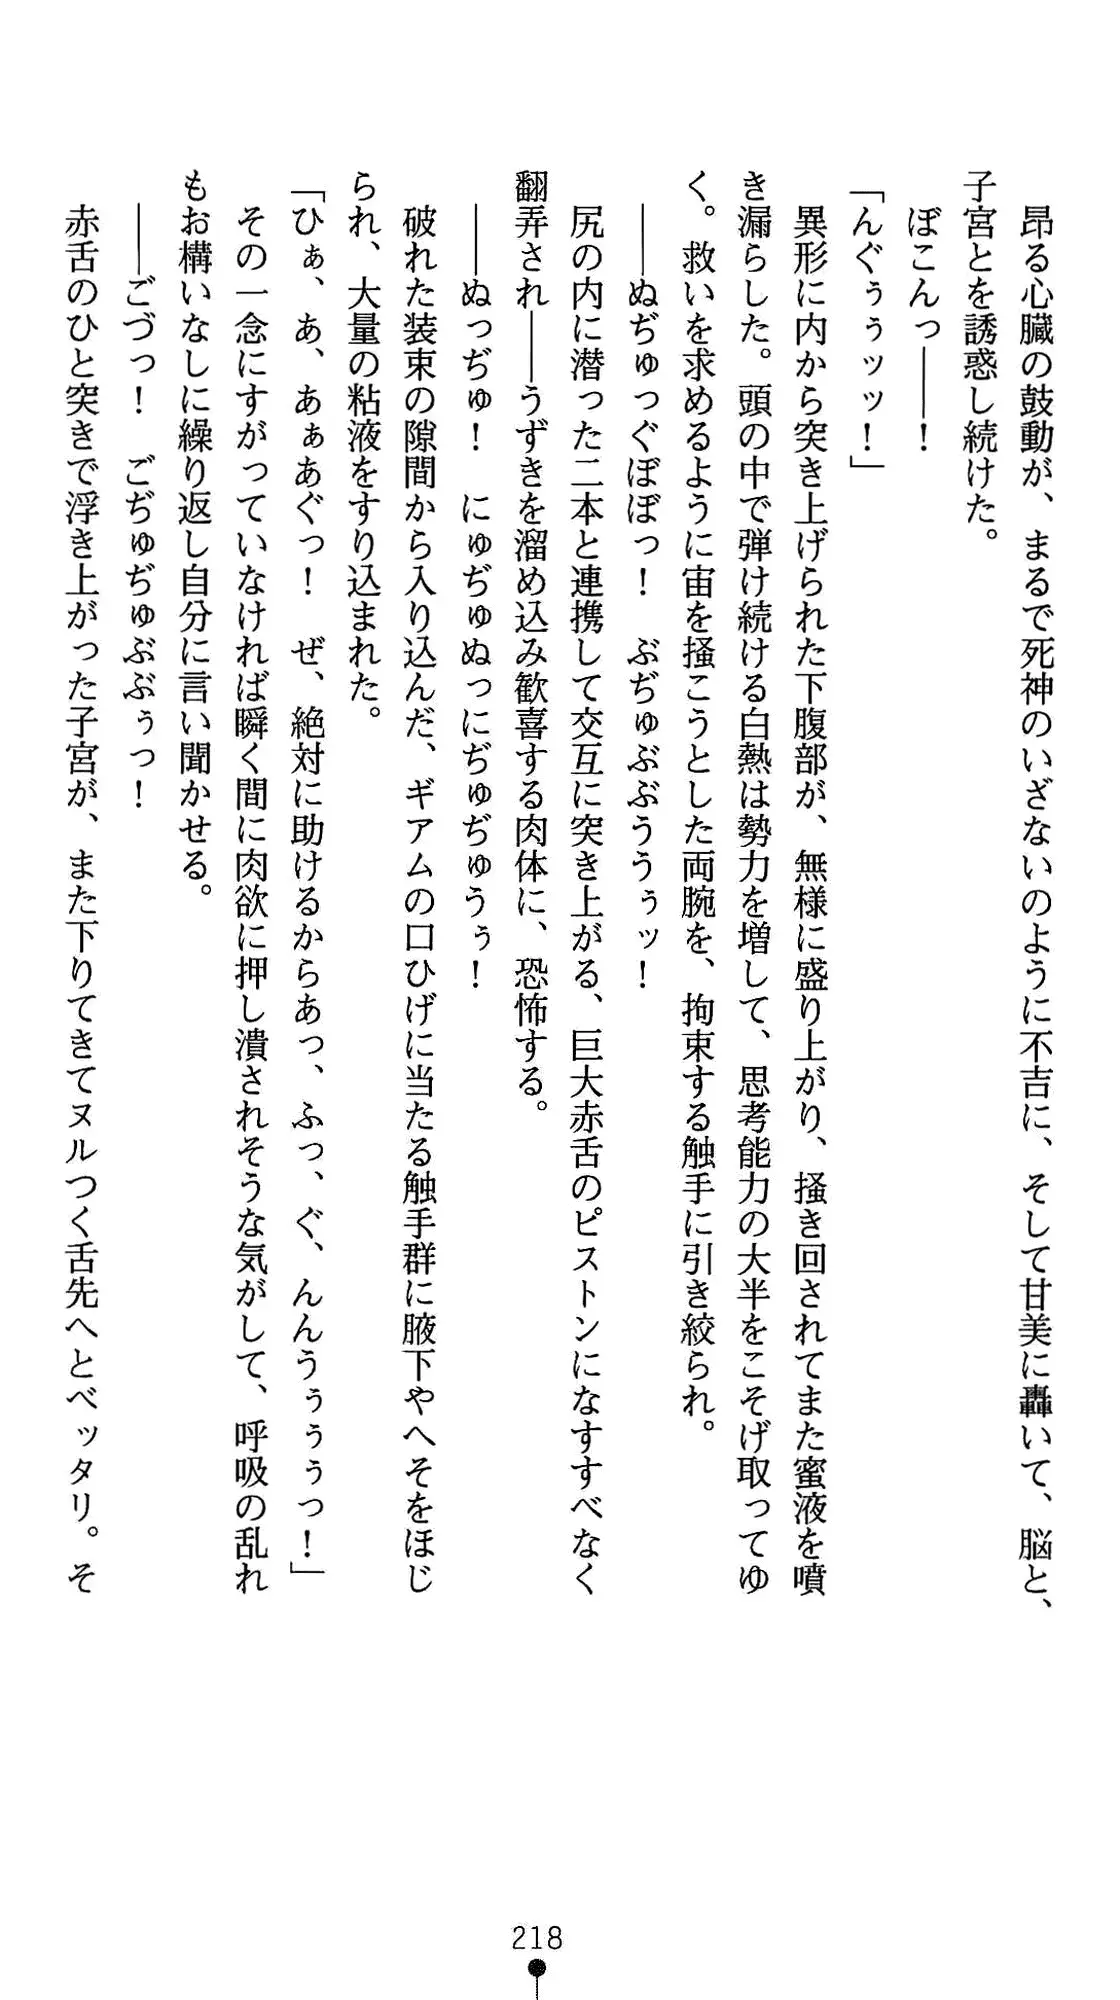 昂る心臓の鼓動が、まるで死神のいざないのように不吉に、そして甘美に轟いて、脳と、
子宮とを誘惑し続けた。
ぼこんっ――！
「んぐぅぅッッ！」
異形に内から突き上げられた下腹部が、無様に盛り上がり、掻き回されてまた蜜液を噴
き漏らした。頭の中で弾け続ける白熱は勢力を増して、思考能力の大半をこそげ取ってゆ
く。救いを求めるように宙を掻こうとした両腕を、拘束する触手に引き絞られ。
――ぬぢゅっぐぼぼっ！　ぶぢゅぶぶううぅッ！
尻の内に潜った二本と連携して交互に突き上がる、巨大赤舌のピストンになすすべなく
翻弄され――うずきを溜め込み歓喜する肉体に、恐怖する。
――ぬっぢゅ！　にゅぢゅぬっにぢゅぢゅうぅ！
破れた装束の隙間から入り込んだ、ギアムの口ひげに当たる触手群に腋下やへそをほじ
られ、大量の粘液をすり込まれた。
「ひぁ、あ、あぁあぐっ！　ぜ、絶対に助けるからあっ、ふっ、ぐ、んんうぅぅぅっ！」
その一念にすがっていなければ瞬く間に肉欲に押し潰されそうな気がして、呼吸の乱れ
もお構いなしに繰り返し自分に言い聞かせる。
――ごづっ！　ごぢゅぢゅぶぶぅっ！
赤舌のひと突きで浮き上がった子宮が、また下りてきてヌルつく舌先へとベッタリ。そ
218